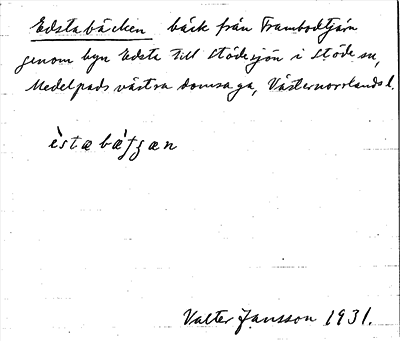 Edstabäcken bäck från Frambodtjärn
genom byn Edsta till Stödesjön i Stöde sn,
Medelpads västra domsaga, Västernorrlands l.
èstabä̀ʃʒan
Valter Jansson 1931.